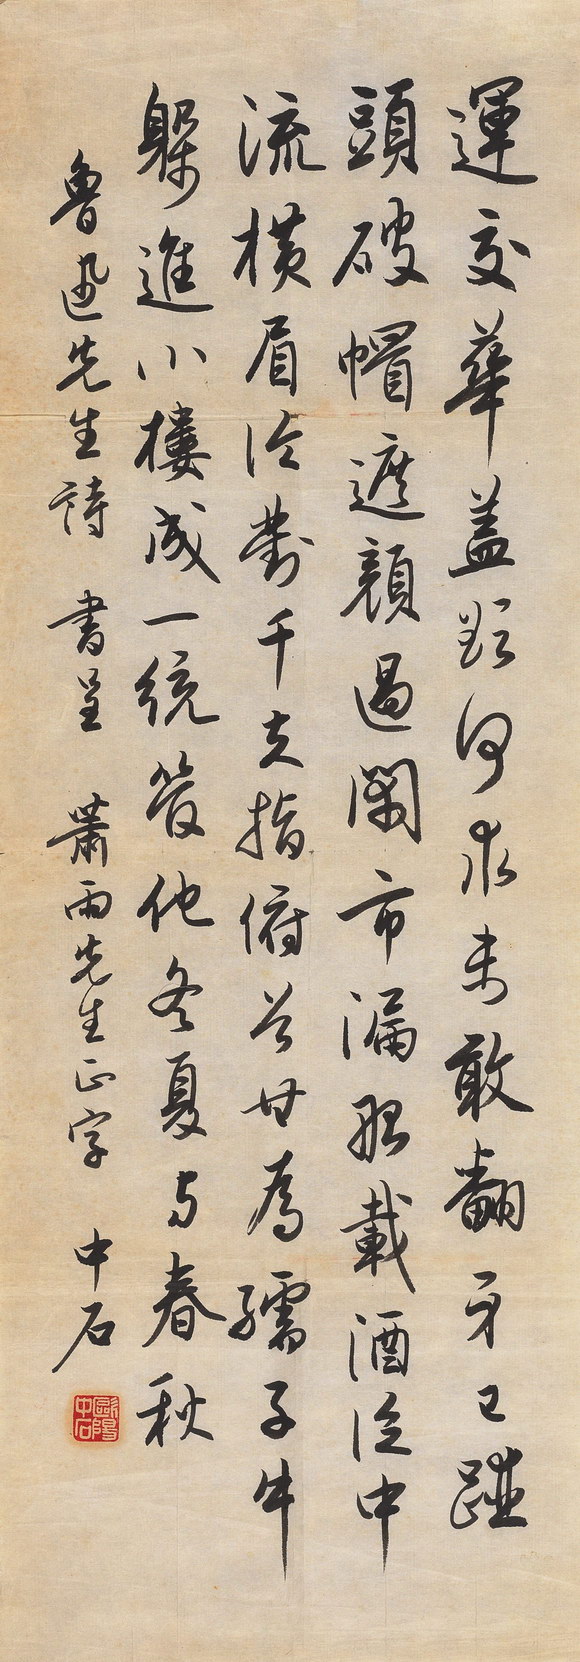 運交華蓋欲何求未敢翻身已踫
頭破帽遮顔過鬧市漏船載酒泛中
流橫眉冷對千夫指俯首甘為孺子牛
躲進小樓成一統管他冬夏与春秋
魯迅先生詩 書呈 蕭雨先生正字 中石
歐陽中石